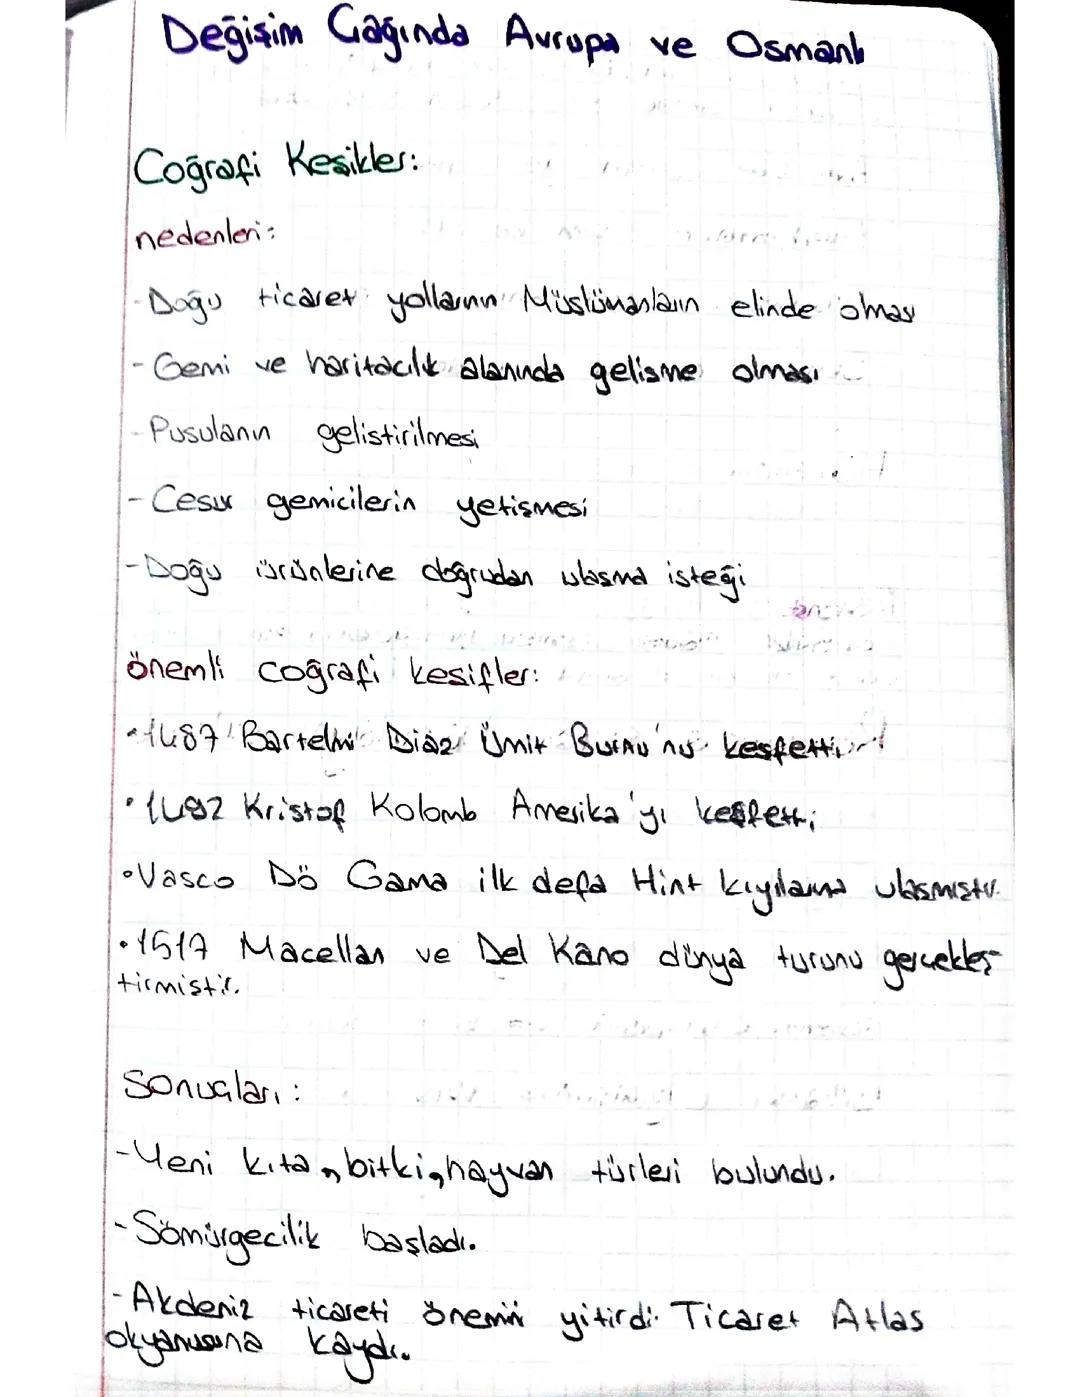 Değişim Çağında Avrupa ve Osmanlı
Coğrafi Keşikler:
nedenleri:
-Doğu ticaret yollarının Müslümanların elinde olması
-Gemi ve haritacılık alanında gelişme olması
-Pusulanın geliştirilmesi
-Cesur gemicilerin yetişmesi
-Doğu ürünlerine doğrudan ulaşma isteği
önemli coğrafi kesifler:
•1487 Bartelmi Diaz Ümit Burnu'nu kesfetti
•1492 Kristof Kolomb Amerika'yı keşfetti
•Vasco Dö Gama ilk defa Hint kıyılarına ulasmıstır.
•1517 Macellan ve Del Kano dünya turunu gerçekleş-
tirmistir.
Sonuçları:
-Yeni kıta, bitki, hayvan türleri bulundu.
-Sömürgecilik başladı.
-Akdeniz ticareti önemini yitirdi. Ticaret Atlas
okyanusuna kaydı.